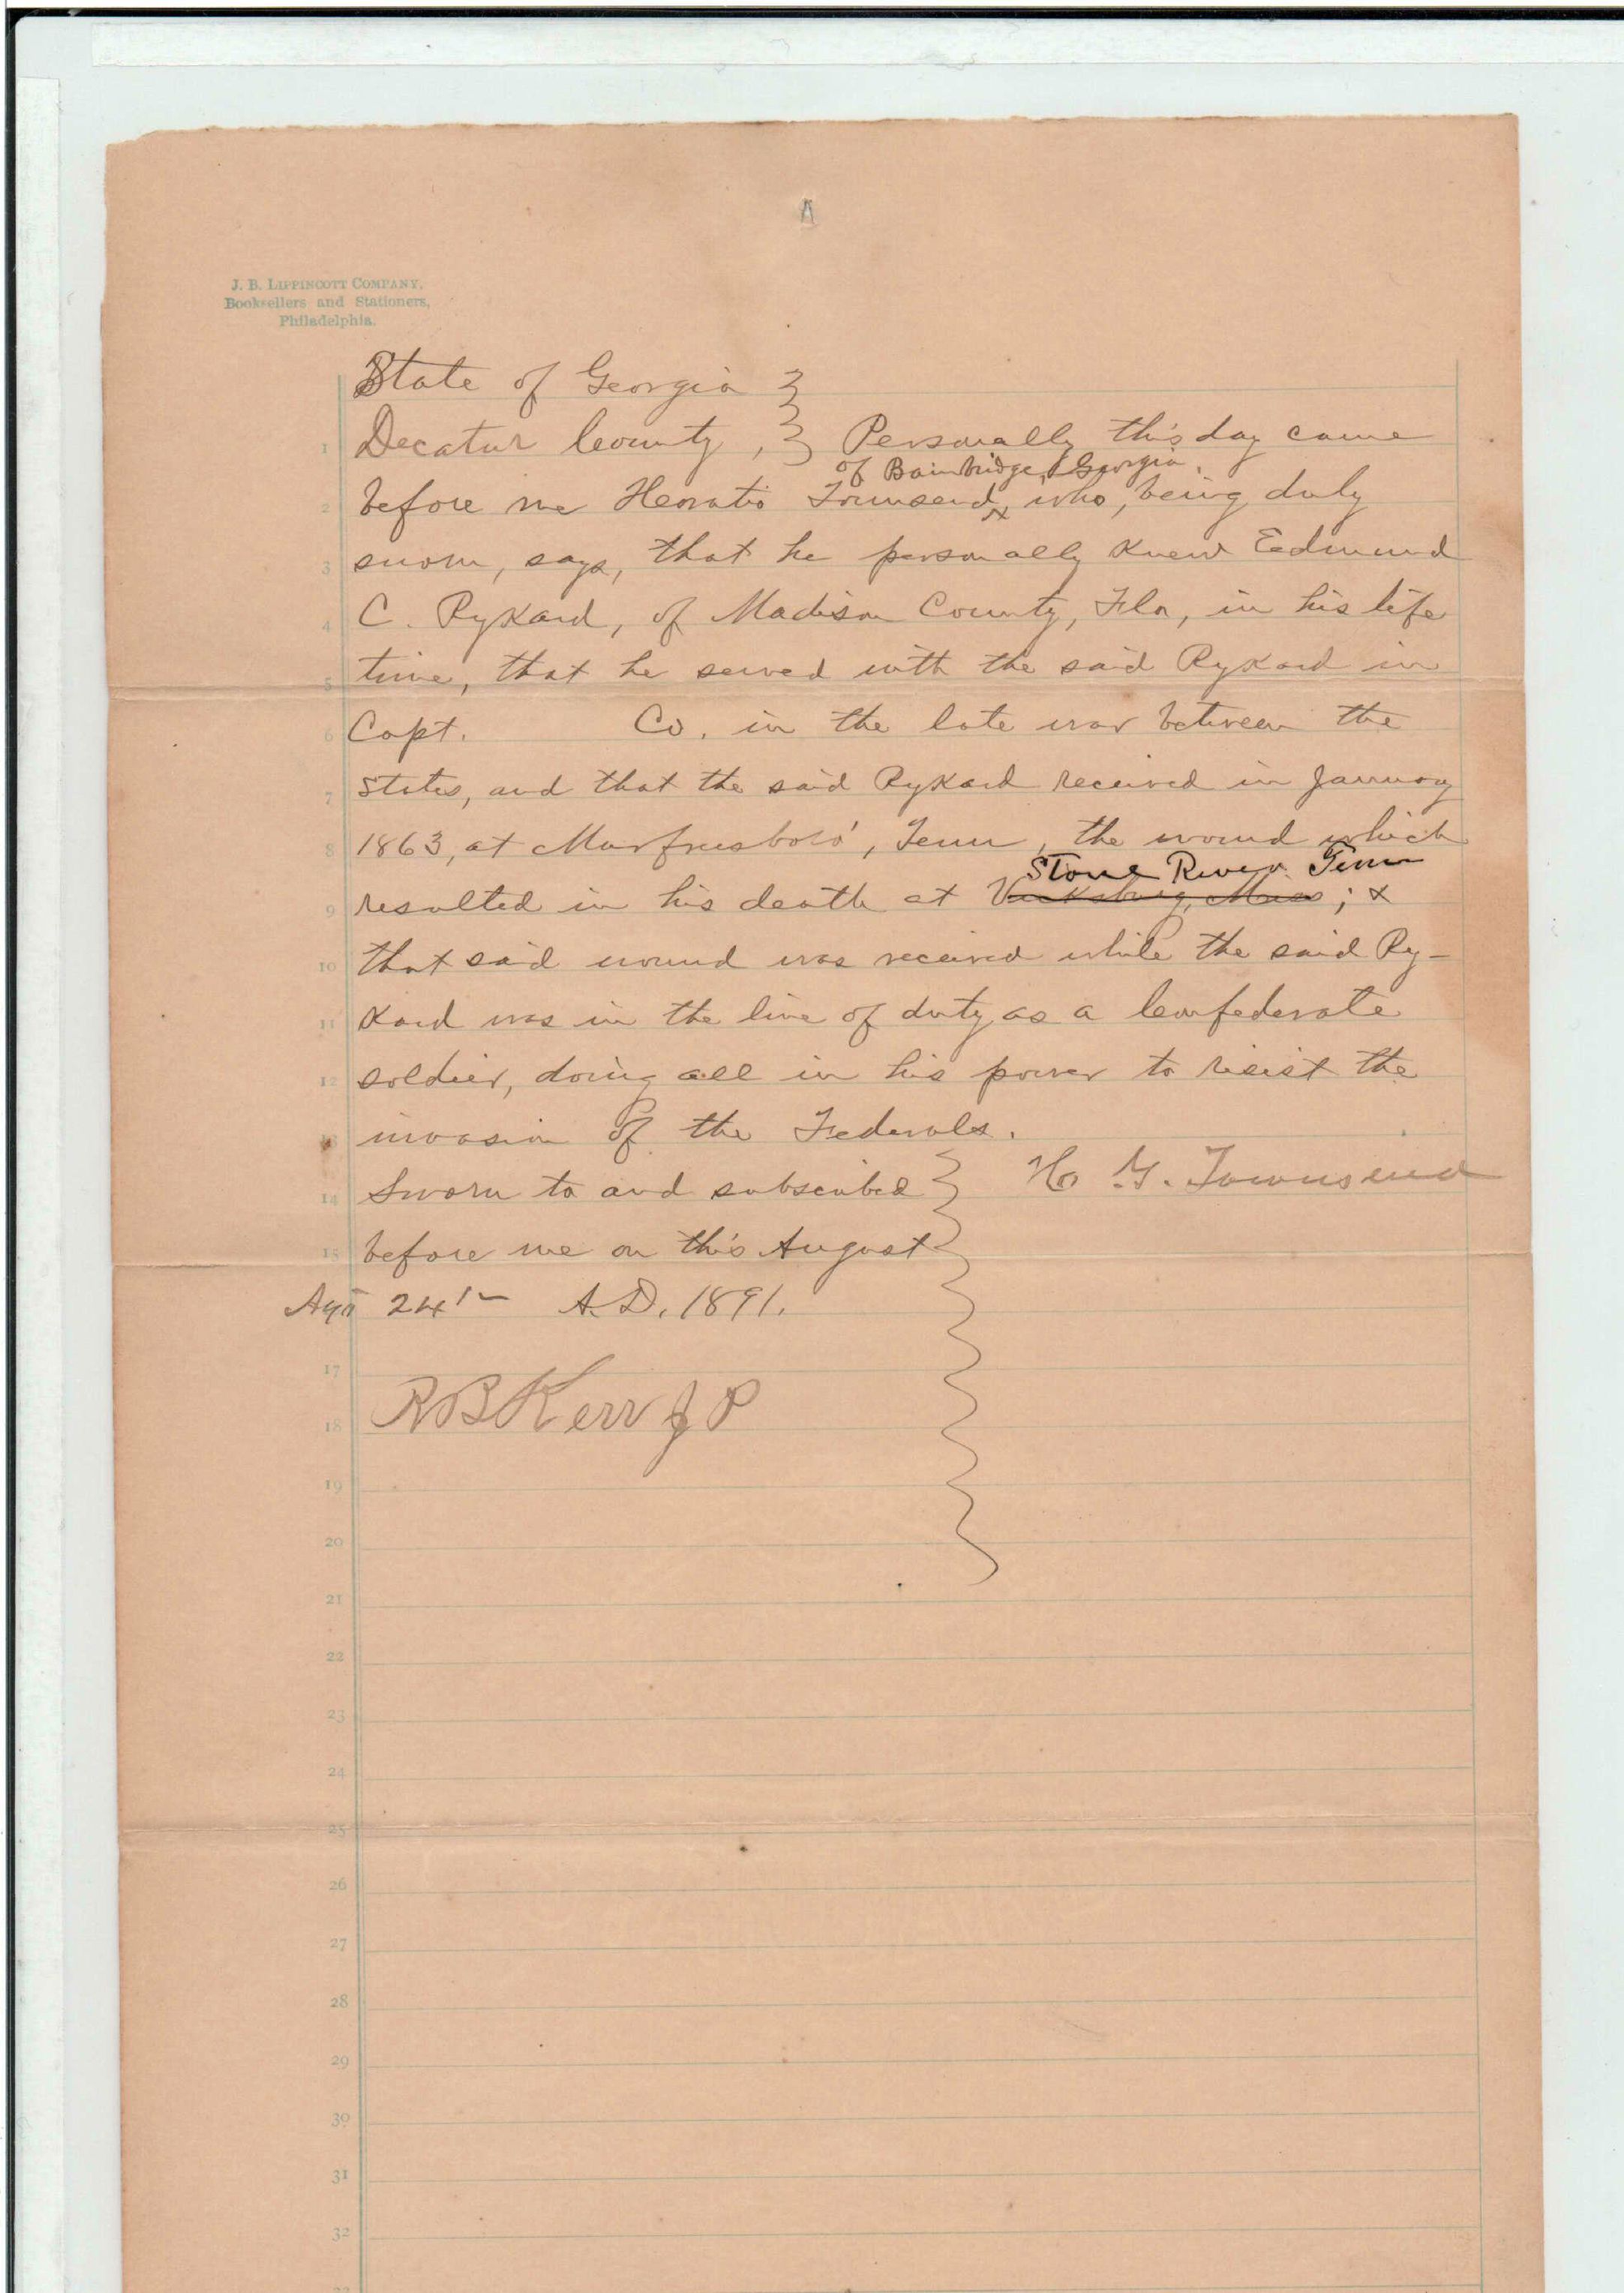 A
J. B. LIPPINCOTT COMPANY,
Booksellers and Stationers,
Philadelphia.
State of Georgia
1 Decatur County, Personally this day came
of Bainbridge, Georgia,
2 before me Horatio Townsend x who, being duly
3 sworn, says, that he personally knew Eedmund
4 C. Rykard, of Madison County, Fla, in his life
5 time, that he served with the said Rykard in
6 Capt. Co. in the late war between the
7 States, and that the said Rykard received in January
8 1863, at Murfreesboro', Tenn, the wound which
Stone River Tenn
9 resulted in his death at Vicksburg, Miss; &
10 that said wound was received while the said Ry-
11 kard was in the line of duty as a Confederate
12 soldier, doing all in his power to resist the
13 invasion of the Federals.
Ho G. Townsend
14 Sworn to and subscribed
15 before me on this August
24 A.D. 1891.
17
R B Kerr J P
18
19
20
21
22
23
24
25
26
27
28
29
30
31
32